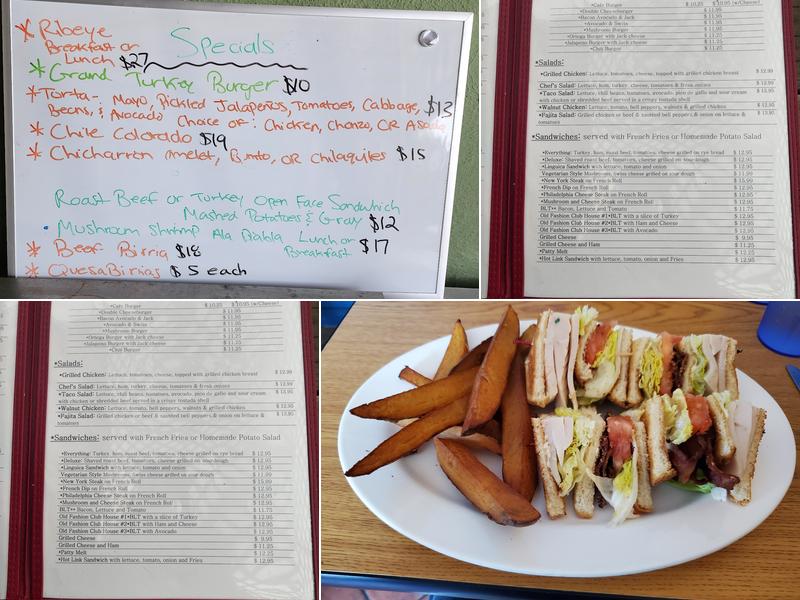 * Ribeye
Breakfast or
Lunch $27
Specials
* Grand Turkey Burger $10
* Torta - Mayo, Pickled Jalapeños, Tomatoes, Cabbage, $13
Beans, & Avocado Choice of: Chicken, Chorizo, OR Asada
* Chile Colorado $19
* Chicharron omelet, Burrito, OR Chilaquiles $15
Roast Beef or Turkey Open Face Sandwhich
Mashed Potatoes & Gravy $12
• Mushroom Shrimp Ala Diabla Lunch or $17
Breakfast
* Beef Birria $18
* QuesaBirrias $5 each
•Cafe Burger $ 10.25 $ 10.95 (w/Cheese)
•Double Cheeseburger $ 11.95
•Bacon Avocado & Jack $ 11.95
•Avocado & Swiss $ 11.95
•Mushroom Burger $ 11.95
•Ortega Burger with Jack cheese $ 11.25
•Jalapeno Burger with Jack cheese $ 11.25
•Chili Burger $ 11.25
•Salads:
•Grilled Chicken: Lettuce, tomatoes, cheese, topped with grilled chicken breast $ 12.99
Chef's Salad: Lettuce, ham, turkey, cheese, tomatoes & fresh onions $ 12.99
•Taco Salad: Lettuce, chili beans, tomatoes, avocado, pico de gallo and sour cream $ 13.95
with chicken or shredded beef served in a crispy tostada shell
•Walnut Chicken: Lettuce, tomato, bell peppers, walnuts & grilled chicken $ 12.95
•Fajita Salad: Grilled chicken or beef & sautéed bell peppers & onion on lettuce & $ 13.95
tomatoes
•Sandwiches: served with French Fries or Homemade Potato Salad
•Everything: Turkey, ham, roast beef, tomato, cheese grilled on rye bread $ 12.95
•Deluxe: Shaved roast beef, tomatoes, cheese grilled on sour-dough $ 12.95
•Linguica Sandwich with lettuce, tomato and onion $ 12.95
Vegetarian Style Mushrooms, swiss cheese grilled on sour dough $ 11.99
•New York Steak on French Roll $ 15.99
•French Dip on French Roll $ 12.95
•Philadelphia Cheese Steak on French Roll $ 12.95
•Mushroom and Cheese Steak on French Roll $ 12.95
BLT** Bacon, Lettuce and Tomato $ 11.75
Old Fashion Club House #1•BLT with a slice of Turkey $ 12.95
Old Fashion Club House #2•BLT with Ham and Cheese $ 12.95
Old Fashion Club House #3•BLT with Avocado $ 12.95
Grilled Cheese $ 9.95
Grilled Cheese and Ham $ 11.25
•Patty Melt $ 12.25
•Hot Link Sandwich with lettuce, tomato, onion and Fries $ 12.95
•Cafe Burger $ 10.25 $ 10.95 (w/Cheese)
•Double Cheeseburger $ 11.95
•Bacon Avocado & Jack $ 11.95
•Avocado & Swiss $ 11.95
•Mushroom Burger $ 11.95
•Ortega Burger with Jack cheese $ 11.25
•Jalapeno Burger with Jack cheese $ 11.25
•Chili Burger $ 11.25
•Salads:
•Grilled Chicken: Lettuce, tomatoes, cheese, topped with grilled chicken breast $ 12.99
Chef's Salad: Lettuce, ham, turkey, cheese, tomatoes & fresh onions $ 12.99
•Taco Salad: Lettuce, chili beans, tomatoes, avocado, pico de gallo and sour cream $ 13.95
with chicken or shredded beef served in a crispy tostada shell
•Walnut Chicken: Lettuce, tomato, bell peppers, walnuts & grilled chicken $ 12.95
•Fajita Salad: Grilled chicken or beef & sautéed bell peppers & onion on lettuce & $ 13.95
tomatoes
•Sandwiches: served with French Fries or Homemade Potato Salad
•Everything: Turkey, ham, roast beef, tomato, cheese grilled on rye bread $ 12.95
•Deluxe: Shaved roast beef, tomatoes, cheese grilled on sour-dough $ 12.95
•Linguica Sandwich with lettuce, tomato and onion $ 12.95
Vegetarian Style Mushrooms, swiss cheese grilled on sour dough $ 11.99
•New York Steak on French Roll $ 15.99
•French Dip on French Roll $ 12.95
•Philadelphia Cheese Steak on French Roll $ 12.95
•Mushroom and Cheese Steak on French Roll $ 12.95
BLT** Bacon, Lettuce and Tomato $ 11.75
Old Fashion Club House #1•BLT with a slice of Turkey $ 12.95
Old Fashion Club House #2•BLT with Ham and Cheese $ 12.95
Old Fashion Club House #3•BLT with Avocado $ 12.95
Grilled Cheese $ 9.95
Grilled Cheese and Ham $ 11.25
•Patty Melt $ 12.25
•Hot Link Sandwich with lettuce, tomato, onion and Fries $ 12.95